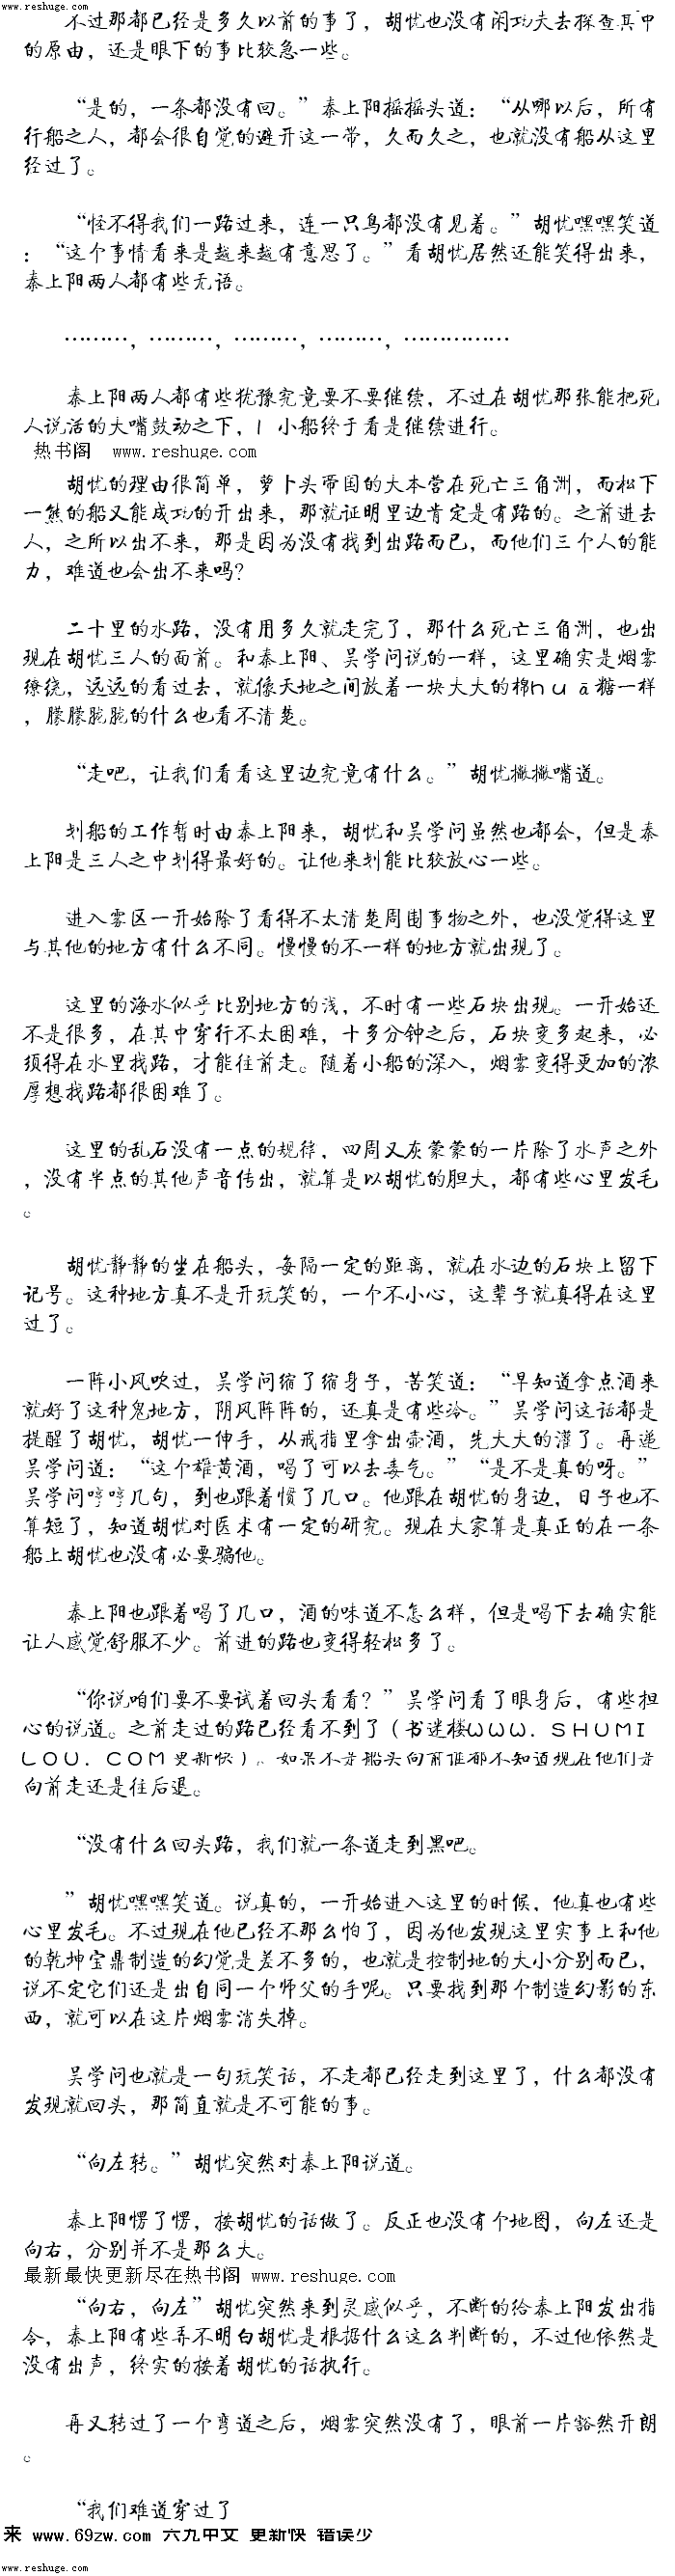 www.reshuge.com
不过那都已经是多久以前的事了，胡忧也没有闲功夫去探查其中
的原由，还是眼下的事比较急一些。
“是的，一条都没有回。”秦上阳摇摇头道：“从哪以后，所有
行船之人，都会很自觉的避开这一带，久而久之，也就没有船从这里
经过了。
“怪不得我们一路过来，连一只鸟都没有见着。”胡忧嘿嘿笑道
：“这个事情看来是越来越有意思了。”看胡忧居然还能笑得出来，
秦上阳两人都有些无语。
………，………，………，………，……………
秦上阳两人都有些犹豫究竟要不要继续，不过在胡忧那张能把死
人说活的大嘴鼓动之下，l 小船终于看是继续进行。
热书阁 www.reshuge.com
胡忧的理由很简单，萝卜头帝国的大本营在死亡三角洲，而松下
一熊的船又能成功的开出来，那就证明里边肯定是有路的。之前进去
人，之所以出不来，那是因为没有找到出路而已，而他们三个人的能
力，难道也会出不来吗？
二十里的水路，没有用多久就走完了，那什么死亡三角洲，也出
现在胡忧三人的面前。和秦上阳、吴学问说的一样，这里确实是烟雾
缭绕，远远的看过去，就像天地之间放着一块大大的棉huā糖一样
，朦朦胧胧的什么也看不清楚。
“走吧，让我们看看这里边究竟有什么。”胡忧撇撇嘴道。
划船的工作暂时由秦上阳来，胡忧和吴学问虽然也都会，但是秦
上阳是三人之中划得最好的。让他来划能比较放心一些。
进入雾区一开始除了看得不太清楚周围事物之外，也没觉得这里
与其他的地方有什么不同。慢慢的不一样的地方就出现了。
这里的海水似乎比别地方的浅，不时有一些石块出现。一开始还
不是很多，在其中穿行不太困难，十多分钟之后，石块变多起来，必
须得在水里找路，才能往前走。随着小船的深入，烟雾变得更加的浓
厚想找路都很困难了。
这里的乱石没有一点的规律，四周又灰蒙蒙的一片除了水声之外
，没有半点的其他声音传出，就算是以胡忧的胆大，都有些心里发毛
。
胡忧静静的坐在船头，每隔一定的距离，就在水边的石块上留下
记号。这种地方真不是开玩笑的，一个不小心，这辈子就真得在这里
过了。
一阵小风吹过，吴学问缩了缩身子，苦笑道：“早知道拿点酒来
就好了这种鬼地方，阴风阵阵的，还真是有些冷。”吴学问这话都是
提醒了胡忧，胡忧一伸手，从戒指里拿出壶酒，先大大的灌了。再递
吴学问道：“这个雄黄酒，喝了可以去毒气。”“是不是真的呀。”
吴学问哼哼几句，到也跟着惯了几口。他跟在胡忧的身边，日子也不
算短了，知道胡忧对医术有一定的研究。现在大家算是真正的在一条
船上胡忧也没有必要骗他。
秦上阳也跟着喝了几口，酒的味道不怎么样，但是喝下去确实能
让人感觉舒服不少。前进的路也变得轻松多了。
“你说咱们要不要试着回头看看？”吴学问看了眼身后，有些担
心的说道。之前走过的路已经看不到了（书迷楼WWW．SHUMI
LOU．COM更新快）。如果不是船头向前谁都不知道现在他们是
向前走还是往后退。
“没有什么回头路，我们就一条道走到黑吧。
”胡忧嘿嘿笑道。说真的，一开始进入这里的时候，他真也有些
心里发毛。不过现在他已经不那么怕了，因为他发现这里实事上和他
的乾坤宝鼎制造的幻觉是差不多的，也就是控制地的大小分别而已，
说不定它们还是出自同一个师父的手呢。只要找到那个制造幻影的东
西，就可以在这片烟雾消失掉。
吴学问也就是一句玩笑话，不走都已经走到这里了，什么都没有
发现就回头，那简直就是不可能的事。
“向左转。”胡忧突然对秦上阳说道。
秦上阳愣了愣，按胡忧的话做了。反正也没有个地图，向左还是
向右，分别并不是那么大。
最新最快更新尽在热书阁 www.reshuge.com
“向右，向左”胡忧突然来到灵感似乎，不断的给秦上阳发出指
令，秦上阳有些弄不明白胡忧是根据什么这么判断的，不过他依然是
没有出声，终实的按着胡忧的话执行。
再又转过了一个弯道之后，烟雾突然没有了，眼前一片豁然开朗
。
“我们难道穿过了
来 www.69zw.com 六九中文 更新快 错误少
www.reshuge.com